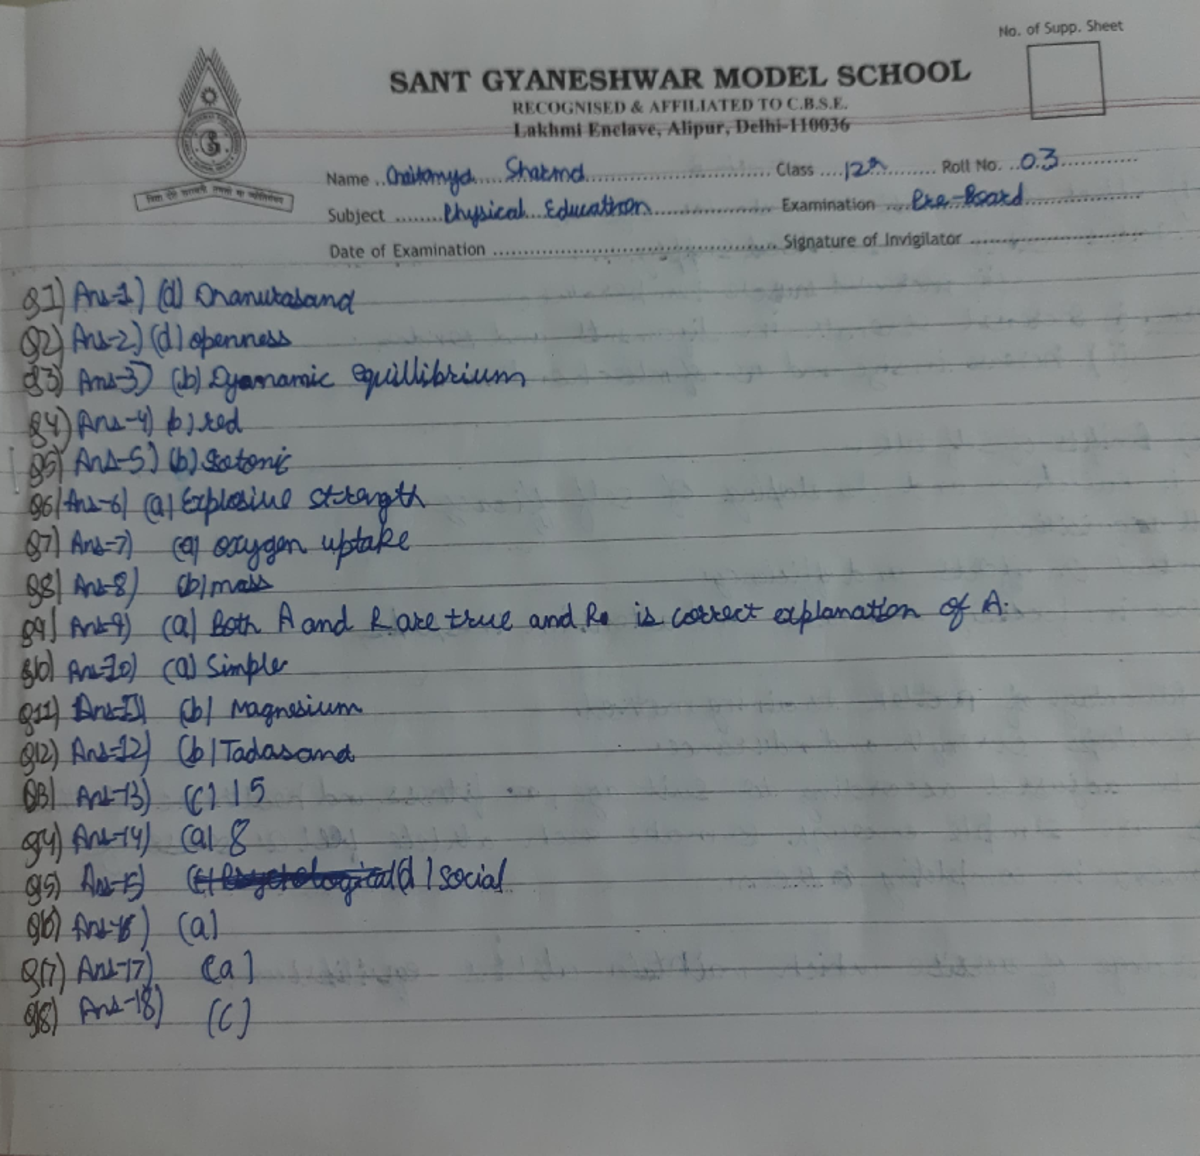 No. of Supp. Sheet
SANT GYANESHWAR MODEL SCHOOL
RECOGNISED & AFFILIATED TO C.B.S.E.
Lakhmi Enclave, Alipur, Delhi-110036
Name Chaitanya Sharma Class 12th Roll No. 03
Subject Physical Education Examination Pre-Board
Date of Examination Signature of Invigilator
Q1) Ans-1) (d) Dhanurasana
Q2) Ans-2) (d) openness
Q3) Ans-3) (b) Dyamamic equillibrium
Q4) Ans-4) b) red
Q5) Ans-5) (b) Isotonic
Q6) Ans-6) (a) Explosive strength
Q7) Ans-7) (a) oxygen uptake
Q8) Ans-8) (b) mass
Q9) Ans-9) (a) Both A and R are true and R is correct explanation of A.
Q10) Ans-10) (a) Simple
Q11) Ans-11) (b) Magnesium
Q12) Ans-12) (b) Tadasana
Q13) Ans-13) (c) 15
Q14) Ans-14) (a) 8
Q15) Ans-15) (d) social
Q16) Ans-16) (a)
Q17) Ans-17) (a)
Q18) Ans-18) (c)